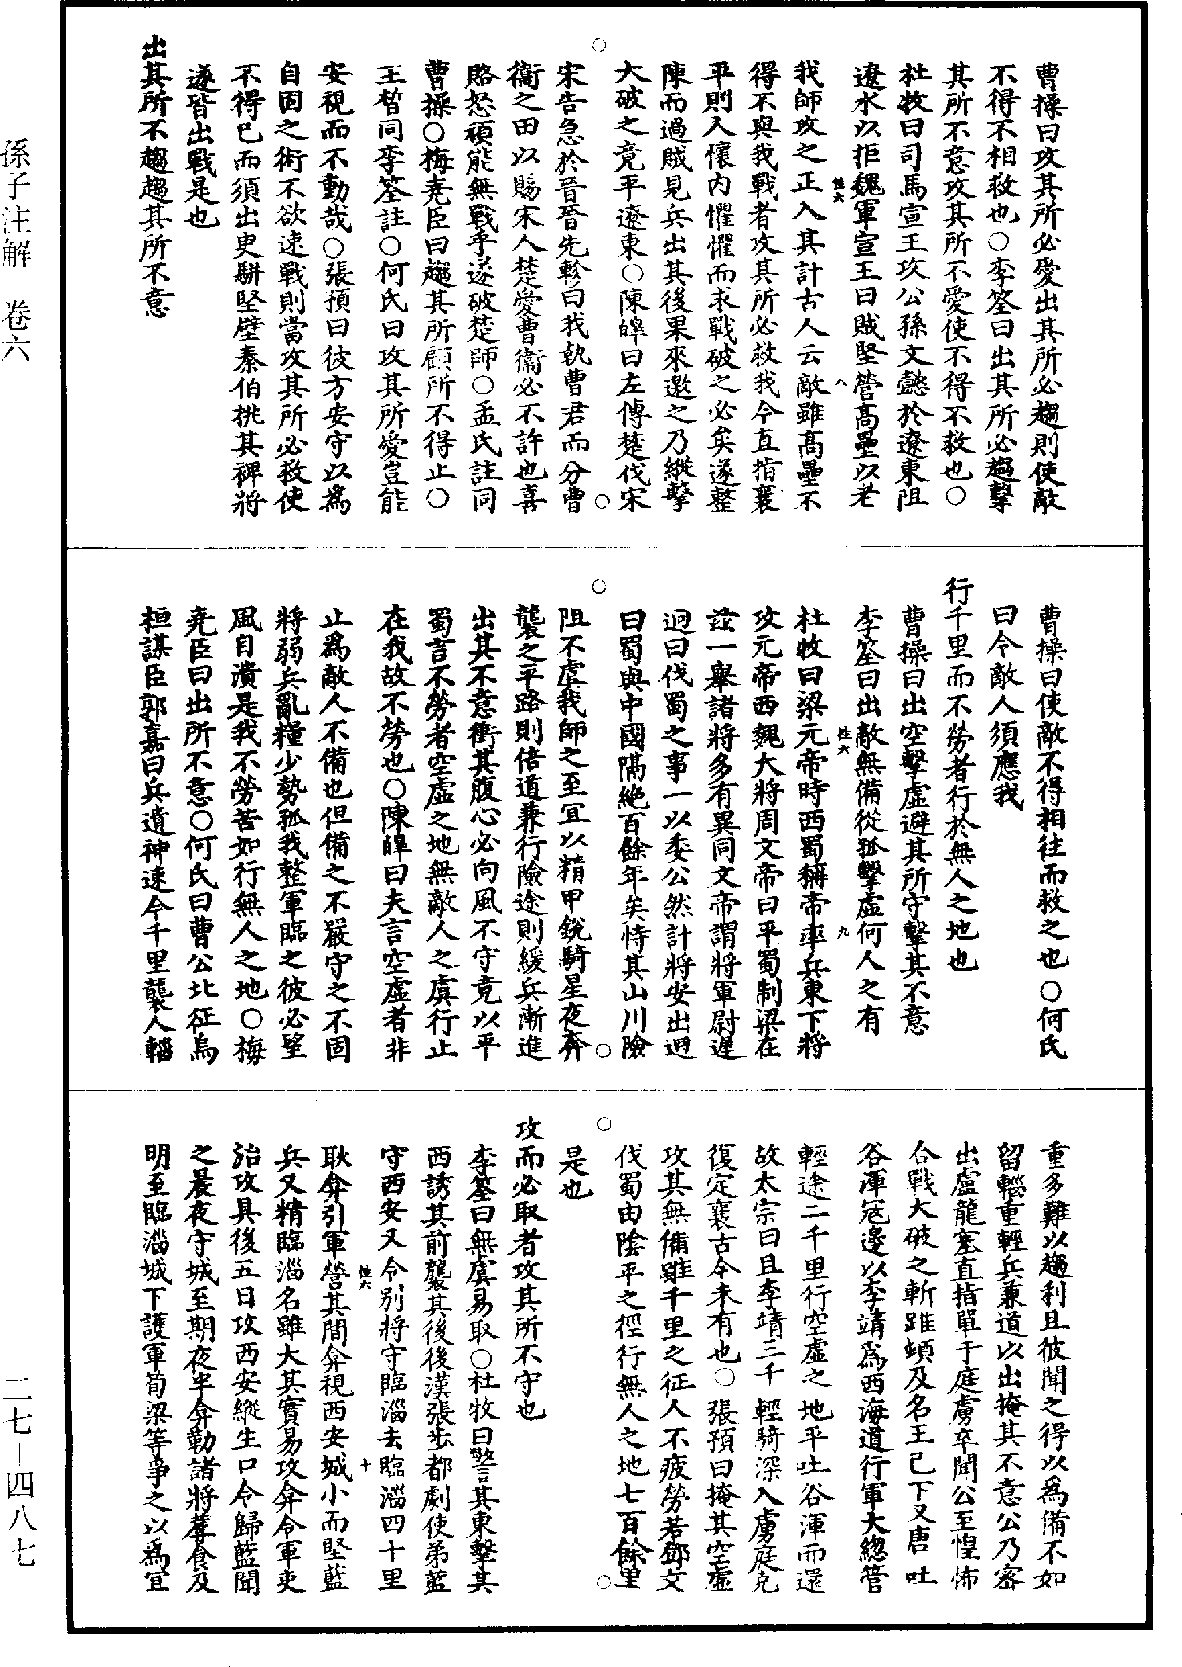 曹操曰攻其所必愛出其所必趨則使敵
不得不相救也○李筌曰出其所必趨擊
其所不意攻其所不愛使不得不救也○
杜牧曰司馬宣王攻公孫文懿於遼東阻
遼水以拒魏軍宣王曰賊堅營高壘以老
我師攻之正入其計古人云敵雖高壘不
得不與我戰者攻其所必救我今直指襄
平則人懷內懼懼而求戰破之必矣遂整
陳而過賊見兵出其後果來邀之乃縱擊
大破之竟平遼東○陳皥曰左傳楚伐宋
宋告急於晉晉先軫曰我執曹君而分曹
衞之田以賜宋人楚愛曹衞必不許也喜
賂怒頑能無戰乎遂破楚師○孟氏註同
曹操○梅堯臣曰趨其所顧所不得止○
王晳同李筌註○何氏曰攻其所愛豈能
安視而不動哉○張預曰彼方安守以爲
自固之術不欲速戰則當攻其所必救使
不得已而須出吏駢堅壁秦伯挑其裨將
遂皆出戰是也
出其所不趨趨其所不意
曹操曰使敵不得相往而救之也○何氏
曰令敵人須應我
行千里而不勞者行於無人之地也
曹操曰出空擊虛避其所守擊其不意
李筌曰出敵無備從孤擊虛何人之有
杜牧曰梁元帝時西蜀稱帝率兵東下將
攻元帝西魏大將周文帝曰平蜀制梁在
茲一舉諸將多有異同文帝謂將軍尉遲
迥曰伐蜀之事一以委公然計將安出迥
曰蜀與中國隔絕百餘年矣恃其山川險
阻不虞我師之至宜以精甲銳騎星夜奔
襲之平路則倍道兼行險途則緩兵漸進
出其不意衝其腹心必向風不守竟以平
蜀言不勞者空虛之地無敵人之虞行止
在我故不勞也○陳皥曰夫言空虛者非
止爲敵人不備也但備之不嚴守之不固
將弱兵亂糧少勢孤我整軍臨之彼必望
風自潰是我不勞苦如行無人之地○梅
堯臣曰出所不意○何氏曰曹公北征烏
桓謀臣郭嘉曰兵遺神速今千里襲人輜
重多難以趨利且彼聞之得以爲備不如
留輜重輕兵兼道以出掩其不意公乃密
出盧龍塞直指單于庭虜卒聞公至惶怖
合戰大破之斬蹋頓及名王已下又唐吐
谷渾寇邊以李靖爲西海道行軍大總管
輕途二千里行空虛之地平吐谷渾而還
故太宗曰且李靖三千輕騎深入虜庭克
復定襄古今未有也○張預曰掩其空虛
攻其無備雖千里之征人不疲勞若鄧文
伐蜀由陰平之徑行無人之地七百餘里
是也
攻而必取者攻其所不守也
李筌曰無虞易取○杜牧曰警其東擊其
西誘其前襲其後後漢張步都劇使弟藍
守西安又令別將守臨淄去臨淄四十里
耿弇引軍營其間弇視西安城小而堅藍
兵又精臨淄名雖大其實易攻弇令軍吏
治攻具後五日攻西安縱生口令歸藍聞
之晨夜守城至期夜半弇勒諸將蓐食及
明至臨淄城下護軍荀梁等爭之以爲宜
孫子注解 卷六
二七—四八七